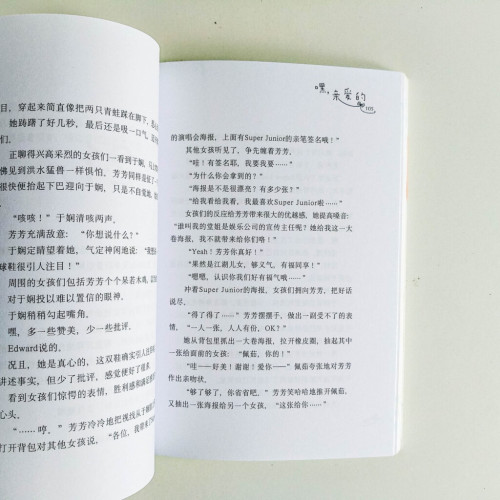 目，穿起来简直像把两只青蛙踩在脚下，
她踌躇了好几秒，最后还是吸一口气，
们。
正聊得兴高采烈的女孩们一看到于娴，
佛见到洪水猛兽一样惧怕，芳芳同样是
很快便抬起下巴迎向于娴，只是不自觉地
“咳咳！”于娴清咳两声。
芳芳充满敌意：“你想说什么？”
于娴定睛望着她，气定神闲地说：
球鞋很引人注目！”
周围的女孩们包括芳芳个个呆若木鸡，
对于娴投以难以置信的眼神。
于娴稍稍勾起嘴角。
嘿，多一些赞美，少一些批评。
Edward说的。
况且，她是真心的，这双鞋确实引人注
讲述事实，但少了批评，感觉便好了很多。
看到女孩们惊愕的表情，胜利感和满足
心头。
“……哼。”芳芳冷冷地把视线从于娴
打开背包对其他女孩说，“各位，我带来了
嘿，亲爱的她
的演唱会海报，上面有Super Junior的亲笔签名哦！”
其他女孩听见了，争先靠着芳芳。
“哇！有签名耶，我要我要……”
“为什么你会拿到的？”
“海报是不是很漂亮？有多少张？”
“给我看给我看，我最喜欢Super Junior啦……”
女孩们的反应给芳芳带来很大的优越感，她提高嗓音：
“谁叫我的堂姐是娱乐公司的宣传主任呢？她给我这一大
卷海报，我不就带来给你们咯！”
“Yeah！芳芳你真好！”
“果然是江湖儿女，够义气，有福同享！”
“嗯嗯，认识你我们真的好有福气哦……”
冲着Super Junior的海报，女孩们拥向芳芳，把好话
说尽。
“得了得了……”芳芳摆摆手，做出一副受不了的表
情，“一人一张，人人有份，OK？”
她从背包里抓出一大卷海报，拉开橡皮圈，抽起其中
一张给面前的女孩：“佩茹，你的！”
“哇——好美！谢谢！爱你——”佩茹夸张地对芳芳
作出亲吻状。
“够了够了，你省省吧。”芳芳笑哈哈地推开佩茹，
又抽出一张海报给另一个女孩，“这张给你……”